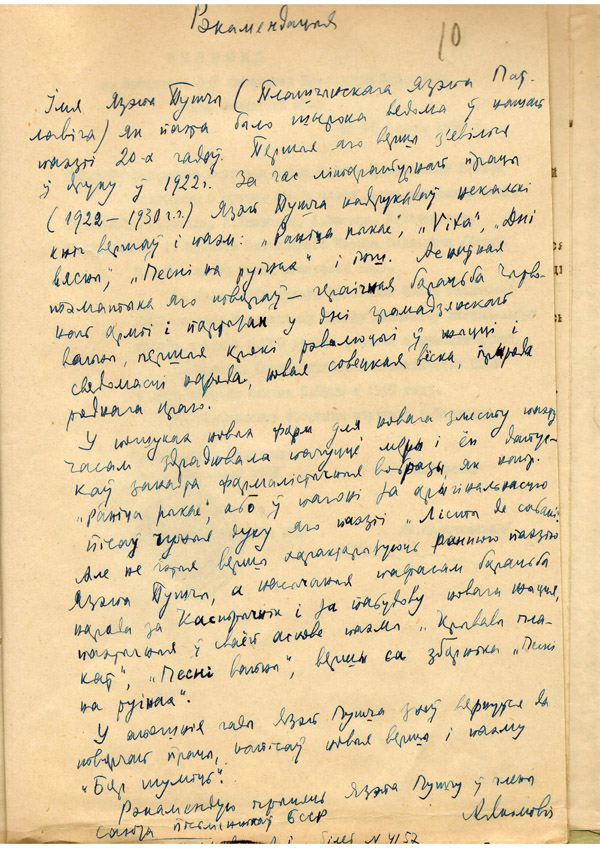 Рэкамендацыя
10
Імя Язэпа Пушчы (Плашчынскага Язэпа Паў-
лавіча) як паэта было шырока вядома ў нашай
паэзіі 20-х гадоў. Першыя яго вершы з'явіліся
ў друку ў 1922 г. За час літаратурнай працы
(1922–1930 г.г.) Язэп Пушча надрукаваў некалькі
кніг вершаў і паэм: „Раніца рыкае", „Vita", „Дні
вясны", „Песні на руінах" і інш. Асноўная
тэматыка яго твораў — гераічная барацьба Чырво-
най арміі і партызан у дні грамадзянскай
вайны, першыя крокі рэвалюцыі ў жыцці і
свядомасці народа, новая совецкая вёска, прырода
роднага краю.
У пошуках новых форм для новага зместу паэту
часам здраджвала пачуццё меры і ён дапус-
каў занадта фармалістычныя вобразы, як напр.
„Раніца рыкае", або ў пагоні за арыгінальнасцю
пісаў чужыя духу яго паэзіі „Лісты да сабакі".
Але не гэтыя вершы характарызуюць раннюю паэзію
Язэпа Пушчы, а насычаныя пафасам барацьбы
народа за Кастрычнік і за пабудову новага жыцця,
рамантычныя ў сваёй аснове паэмы „Крывавы пла-
кат", „Песні вайны", вершы са зборніка „Песні
на руінах".
У апошнія гады Язэп Пушча зноў вярнуўся да
творчай працы, напісаў новыя вершы і паэму
„Бор шуміць".
Рэкамендую прыняць Язэпа Пушчу ў члены
Саюза пісьменнікаў БССР А. Якімовіч
білет N 4157